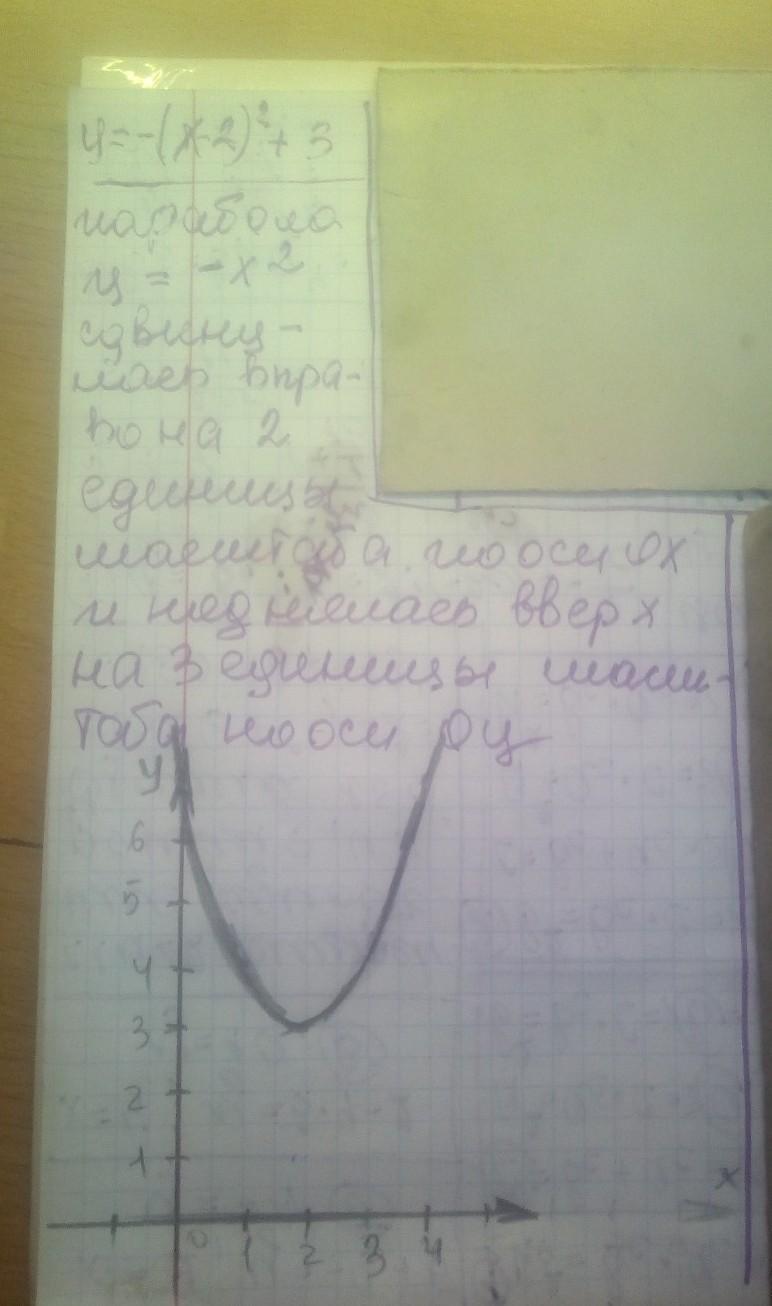 y=-(x-2)²+3
парабола
y = -x²
сдвину-
лась впра-
во на 2
единицы
масштаба по оси ОХ
и поднялась вверх
на 3 единицы масш-
таба по оси Оу
y
6
5
4
3
2
1
x
0 1 2 3 4